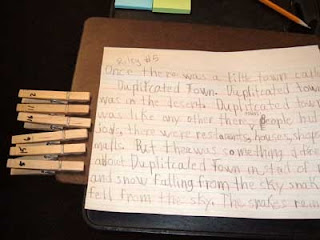 Riley #5
Once there was a little town called
Duplitcated Town. Duplitcated town
was in the desert. Duplitcated town
was like any other there, people but
dogs, there were houses, shops
malls. But there was something
about Duplitcated Town insted of
and snow falling from the sky snak
fell from the sky. The snakes
2
11
16
4
5